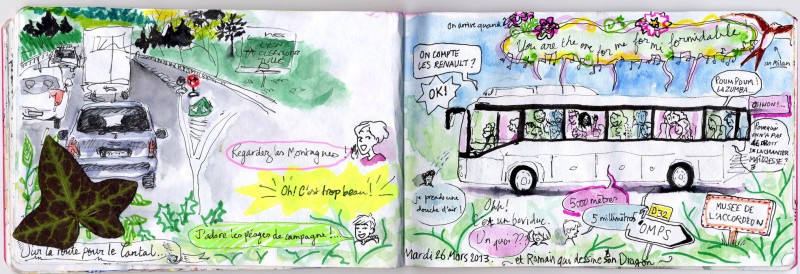 Regardez les Montagnes!
Oh! C'est trop beau!
J'adore les péages de campagne!...
Sur la route pour le Cantal...
On arrive quand?
You are the one for me for mi formidable
un Milan
ON COMPTE
LES RENAULT?
OK!
POUM POUM!
LA ZUMBA...
OH NON!...
POURQUOI
ON N'A PAS
LE DROIT
DE LA CHANTER
MAÎTRESSE?
je prends une
douche d'air.
Ooh!
est un
Un quoi???
5000 mètres
5 millimètres
D32
OMPS
MUSÉE DE
L'ACCORDÉON
Mardi 26 Mars 2013.
et Romain qui dessine son Dragon